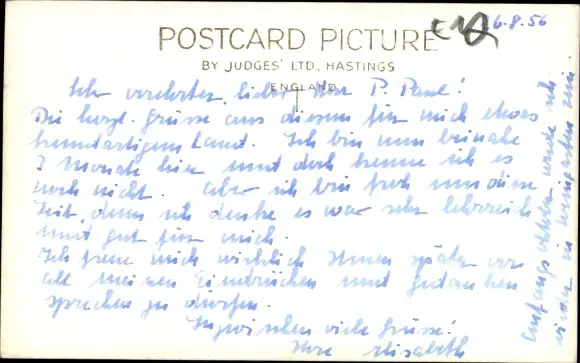 POSTCARD PICTURE
BY JUDGES' LTD., HASTINGS
ENGLAND
6.8.56
Sehr verehrter, lieber Herr P. Paul!
Die herzl. Grüsse aus diesem für mich etwas
fremdartigem Land. Ich bin nun beinahe
3 Monate hier und doch kenne ich es
noch nicht. Aber ich bin froh um diese
Zeit, denn ich denke es war sehr lehrreich
und gut für mich.
Ich freue mich wirklich Ihnen später von
all meinen Eindrücken und Gedanken
sprechen zu dürfen.
Inzwischen viele Grüsse!
Ihre Elisabeth
Anfangs Oktober werde ich
wieder in Weingarten sein.